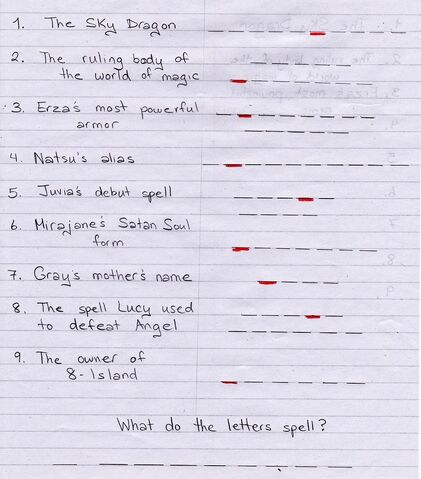 1. The Sky Dragon
2. The ruling body of
the world of magic
3. Erza's most powerful
armor
4. Natsu's alias
5. Juvia's debut spell
6. Mirajane's Satan Soul
form
7. Gray's mother's name
8. The spell Lucy used
to defeat Angel
9. The owner of
8-Island
What do the letters spell?